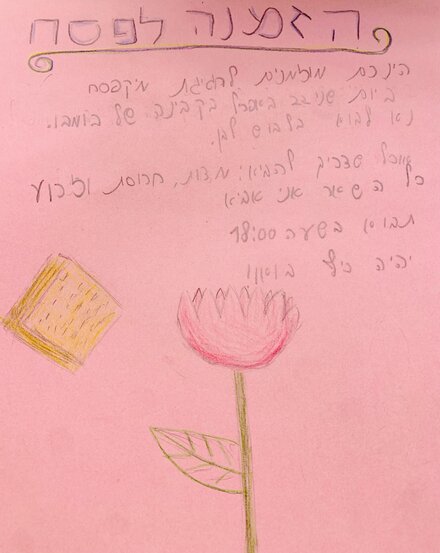 הזמנה לפסח
הינכם מוזמנים לחגיגת מיקפסח
ביום בקבינה של בומבו.
נא לבוא בלבוש לבן.
אוכל שצריך להביא: מצות, חרוסת
כל השאר אני אביא
תבואו בשעה 18:00
יהיה כיף